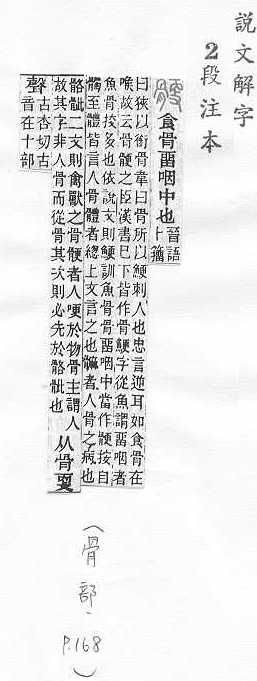 說文解字
2段注本
骾 食骨畱咽中也 晉語卜籀
曰狹以銜骨韋曰骨所以鯁刺人也忠言逆耳如食骨在
喉故云骨骾之臣漢書已下皆作骨鯁字從魚謂畱咽者
魚骨挍多也依說文則鯁訓魚骨骨畱咽中當作骾按自
髑至體皆言人骨體者緫上文言之也䯢者人骨之病也
骼骴二文則禽獸之骨骾者人哽於物骨主謂人
故其字非人骨而從骨其次則必先於骼骴也 从骨㪅
聲 古杏切古
音在十部
(骨部、P.168)